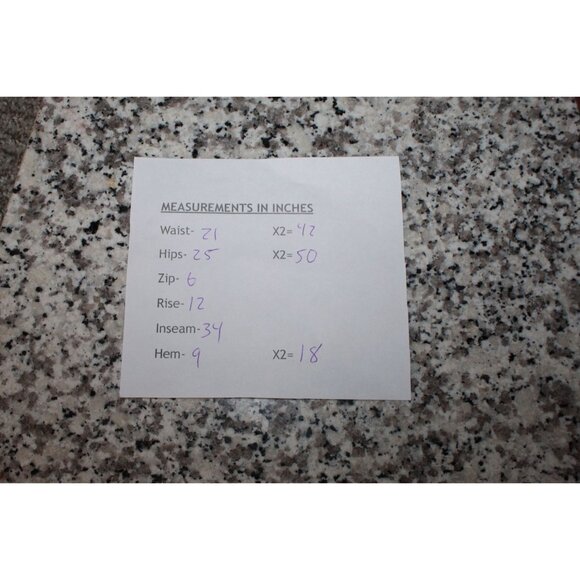 MEASUREMENTS IN INCHES
Waist- 21 X2= 42
Hips- 25 X2= 50
Zip- 6
Rise- 12
Inseam- 34
Hem- 9 X2= 18